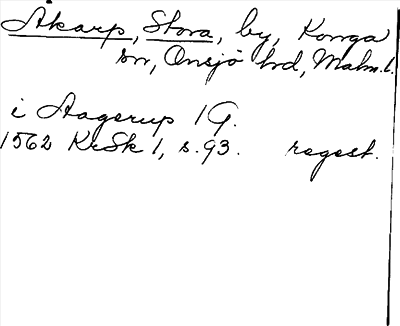 Åkarp, Stora, by, Konga
sn, Onsjö hd, Malm.l.
i Aagerup 1 G.
1562 KrSk 1, s. 93. regest.